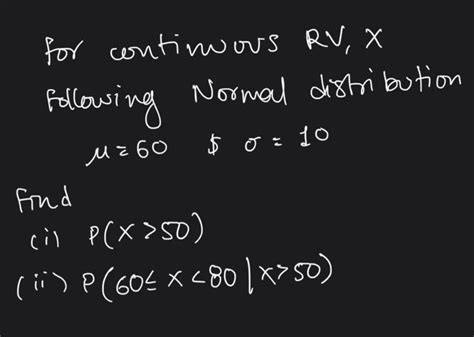 for continuous RV, X
following Normal distribution
μ = 60 $ σ = 10
Find
(i) P(X > 50)
(ii) P(60 ≤ X < 80 | X > 50)